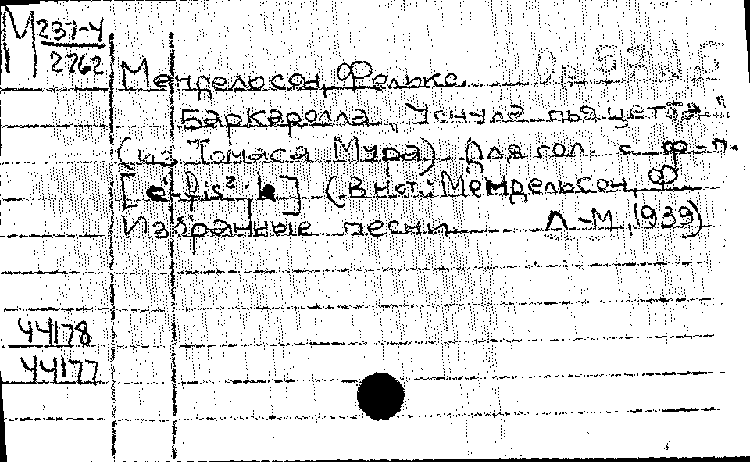 М 237-4
2762
Мендельсон, Феликс.
Баркаролла „Уснула пьяцетта"
(из Томаса Мура) Для гол. с ф-п.
[e¹-Dis²; h] (В нот.: Мендельсон, Ф
Избранные песни Л-М, 1939)
44178
44177